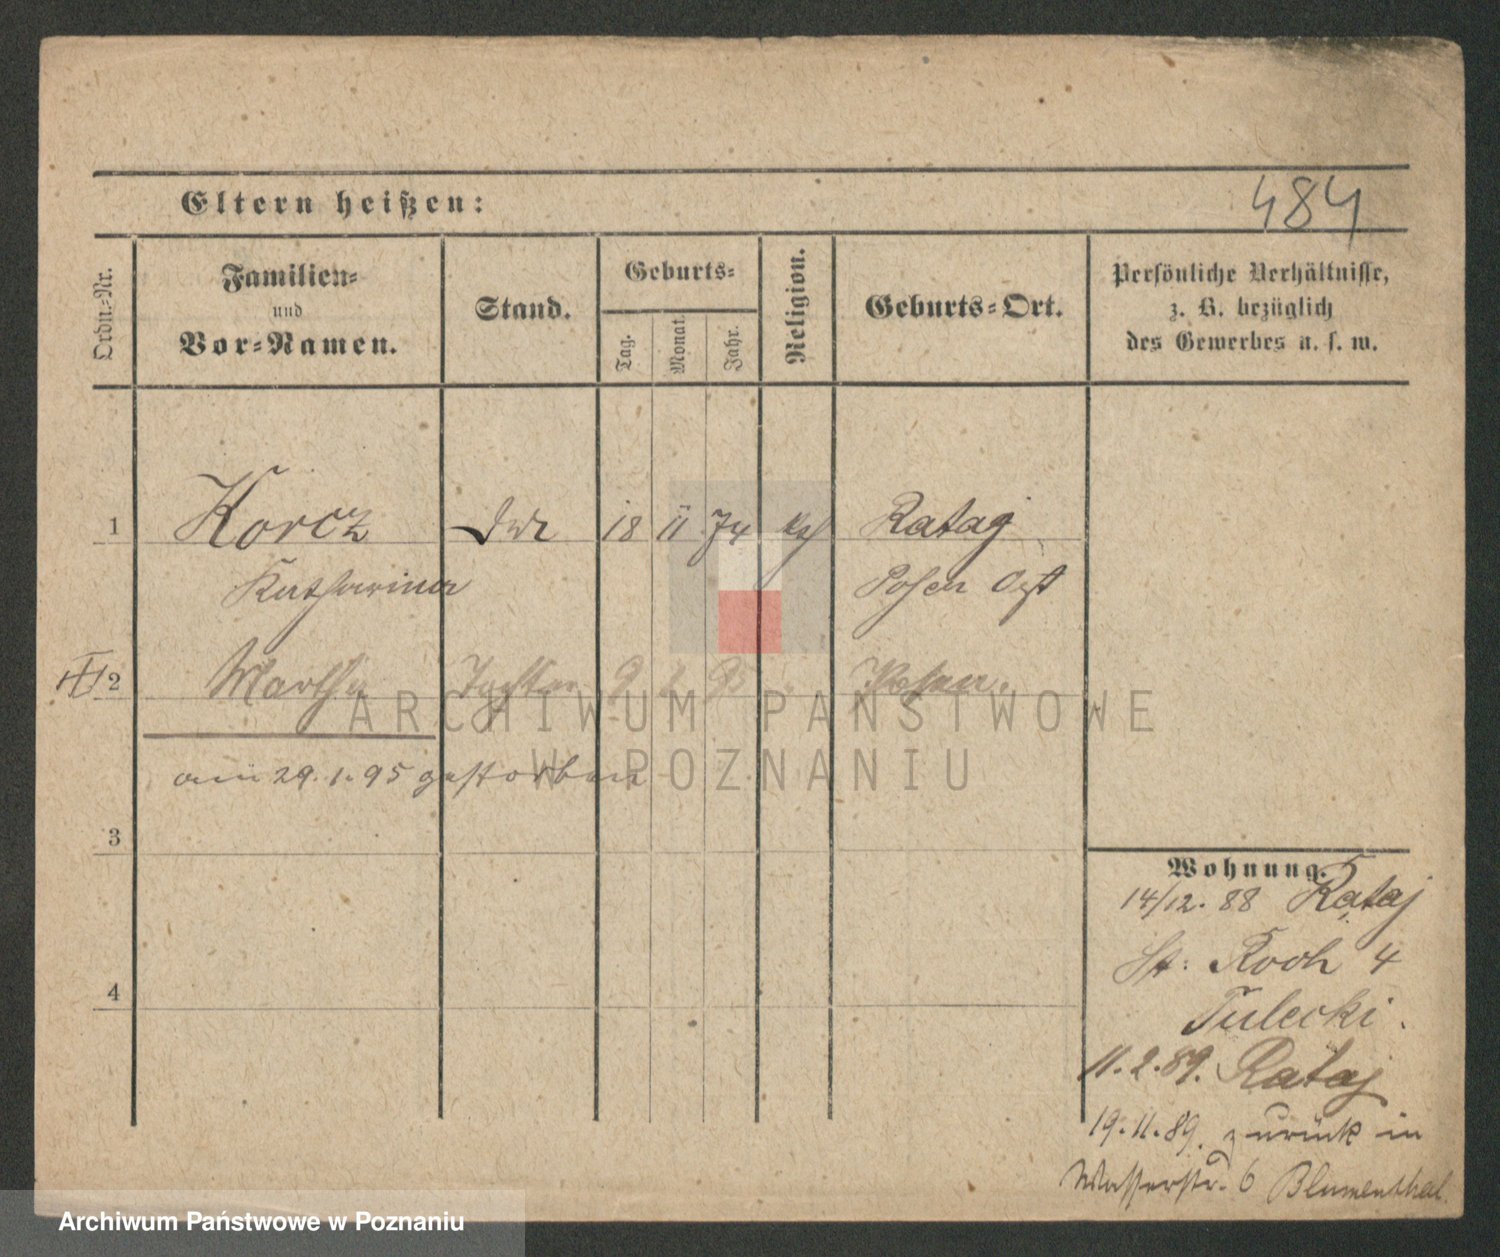 484
Eltern heißen:
Ordn.-Nr.
Familien-
und
Vor-Namen.
Stand.
Geburts-
Tag.
Monat.
Jahr.
Religion.
Geburts-Ort.
Persönliche Verhältnisse,
z. B. bezüglich
des Gewerbes u. s. w.
1 Korcz 18 11 74 kath Rataj
Katharina Posen Ost
2 Martha Tochter 9 1 95 Posen.
am 29.1.95 gestorben
3
4
Wohnung.
14/12. 88 Rataj
St: Roch 4
Tulecki.
11.2.89. Rataj
19.11.89. zurück in
Wasserstr. 6 Blumenthal
ARCHIWUM PAŃSTWOWE
W POZNANIU
Archiwum Państwowe w Poznaniu